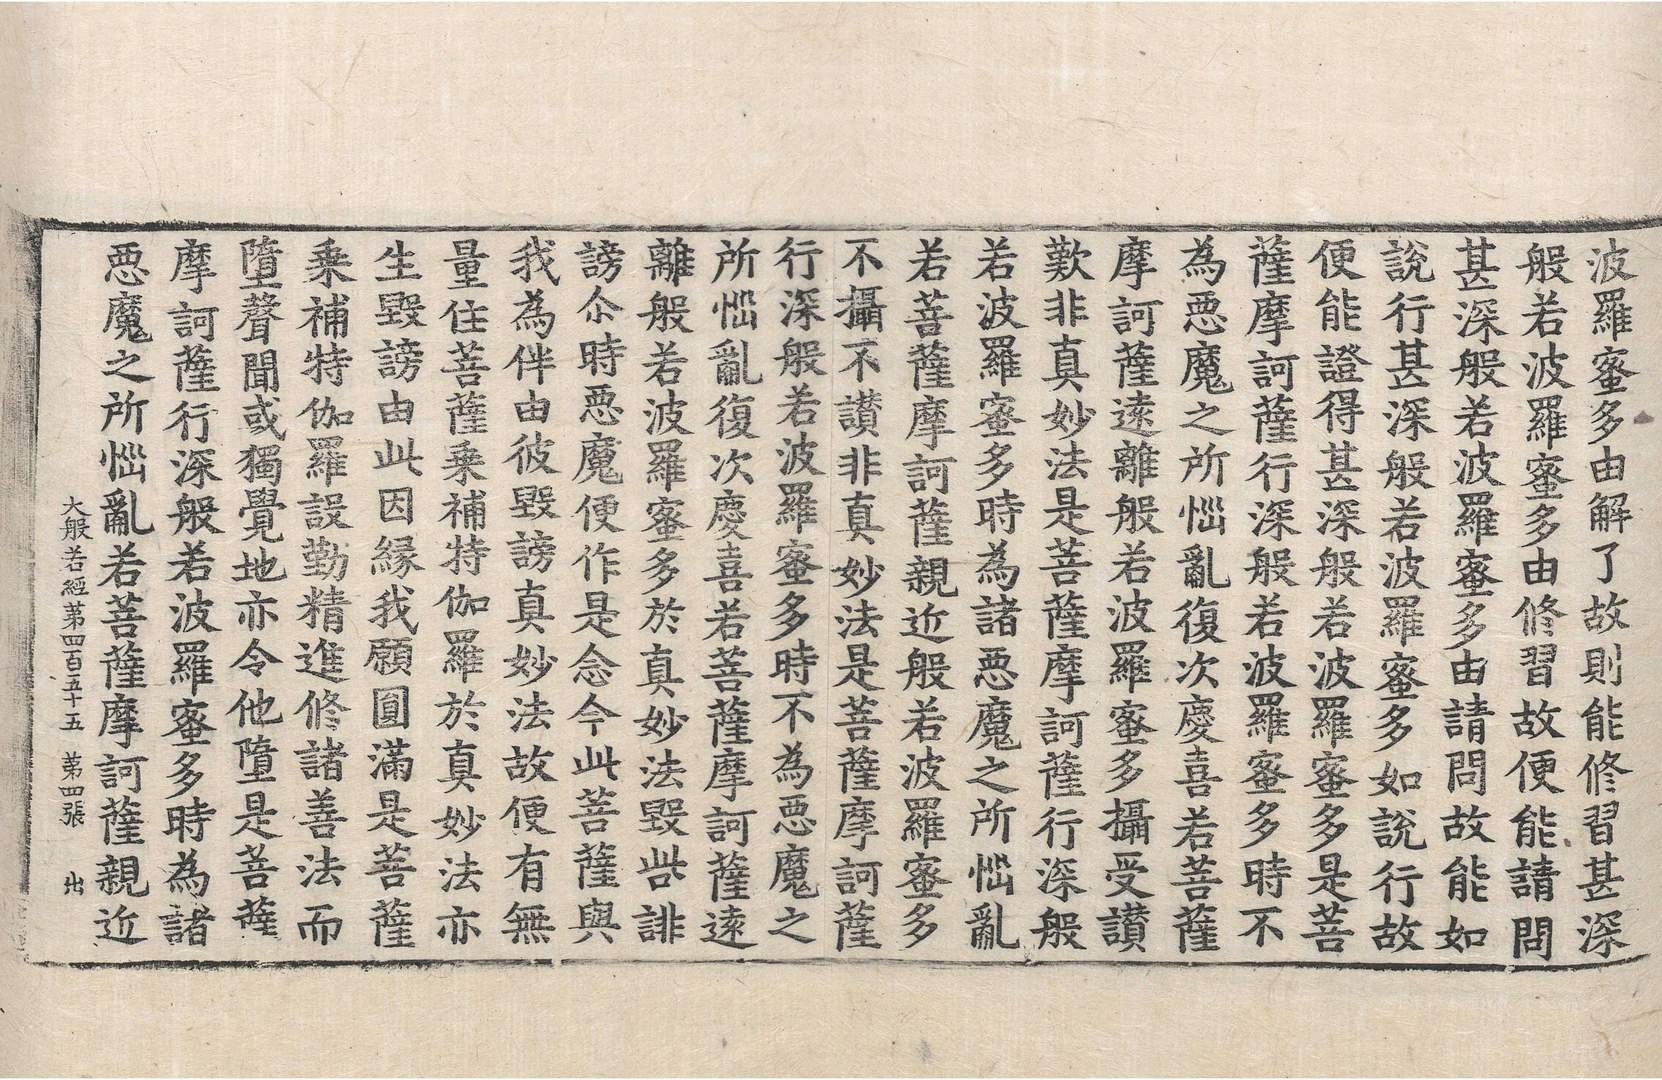 波羅蜜多由解了故則能修習甚深
般若波羅蜜多由修習故便能請問
甚深般若波羅蜜多由請問故能如
說行甚深般若波羅蜜多如說行故
便能證得甚深般若波羅蜜多是菩
薩摩訶薩行深般若波羅蜜多時不
為惡魔之所惱亂復次慶喜若菩薩
摩訶薩遠離般若波羅蜜多攝受讃
歎非真妙法是菩薩摩訶薩行深般
若波羅蜜多時為諸惡魔之所惱亂
若菩薩摩訶薩親近般若波羅蜜多
不攝不讃非真妙法是菩薩摩訶薩
行深般若波羅蜜多時不為惡魔之
所惱亂復次慶喜若菩薩摩訶薩遠
離般若波羅蜜多於真妙法毀呰誹
謗尒時惡魔便作是念今此菩薩與
我為伴由彼毀謗真妙法故便有無
量住菩薩乘補特伽羅於真妙法亦
生毀謗由此因緣我願圓滿是菩薩
乘補特伽羅設勤精進修諸善法而
墮聲聞或獨覺地亦令他墮是菩薩
摩訶薩行深般若波羅蜜多時為諸
惡魔之所惱亂若菩薩摩訶薩親近
大般若經第四百五十五 第四張 出